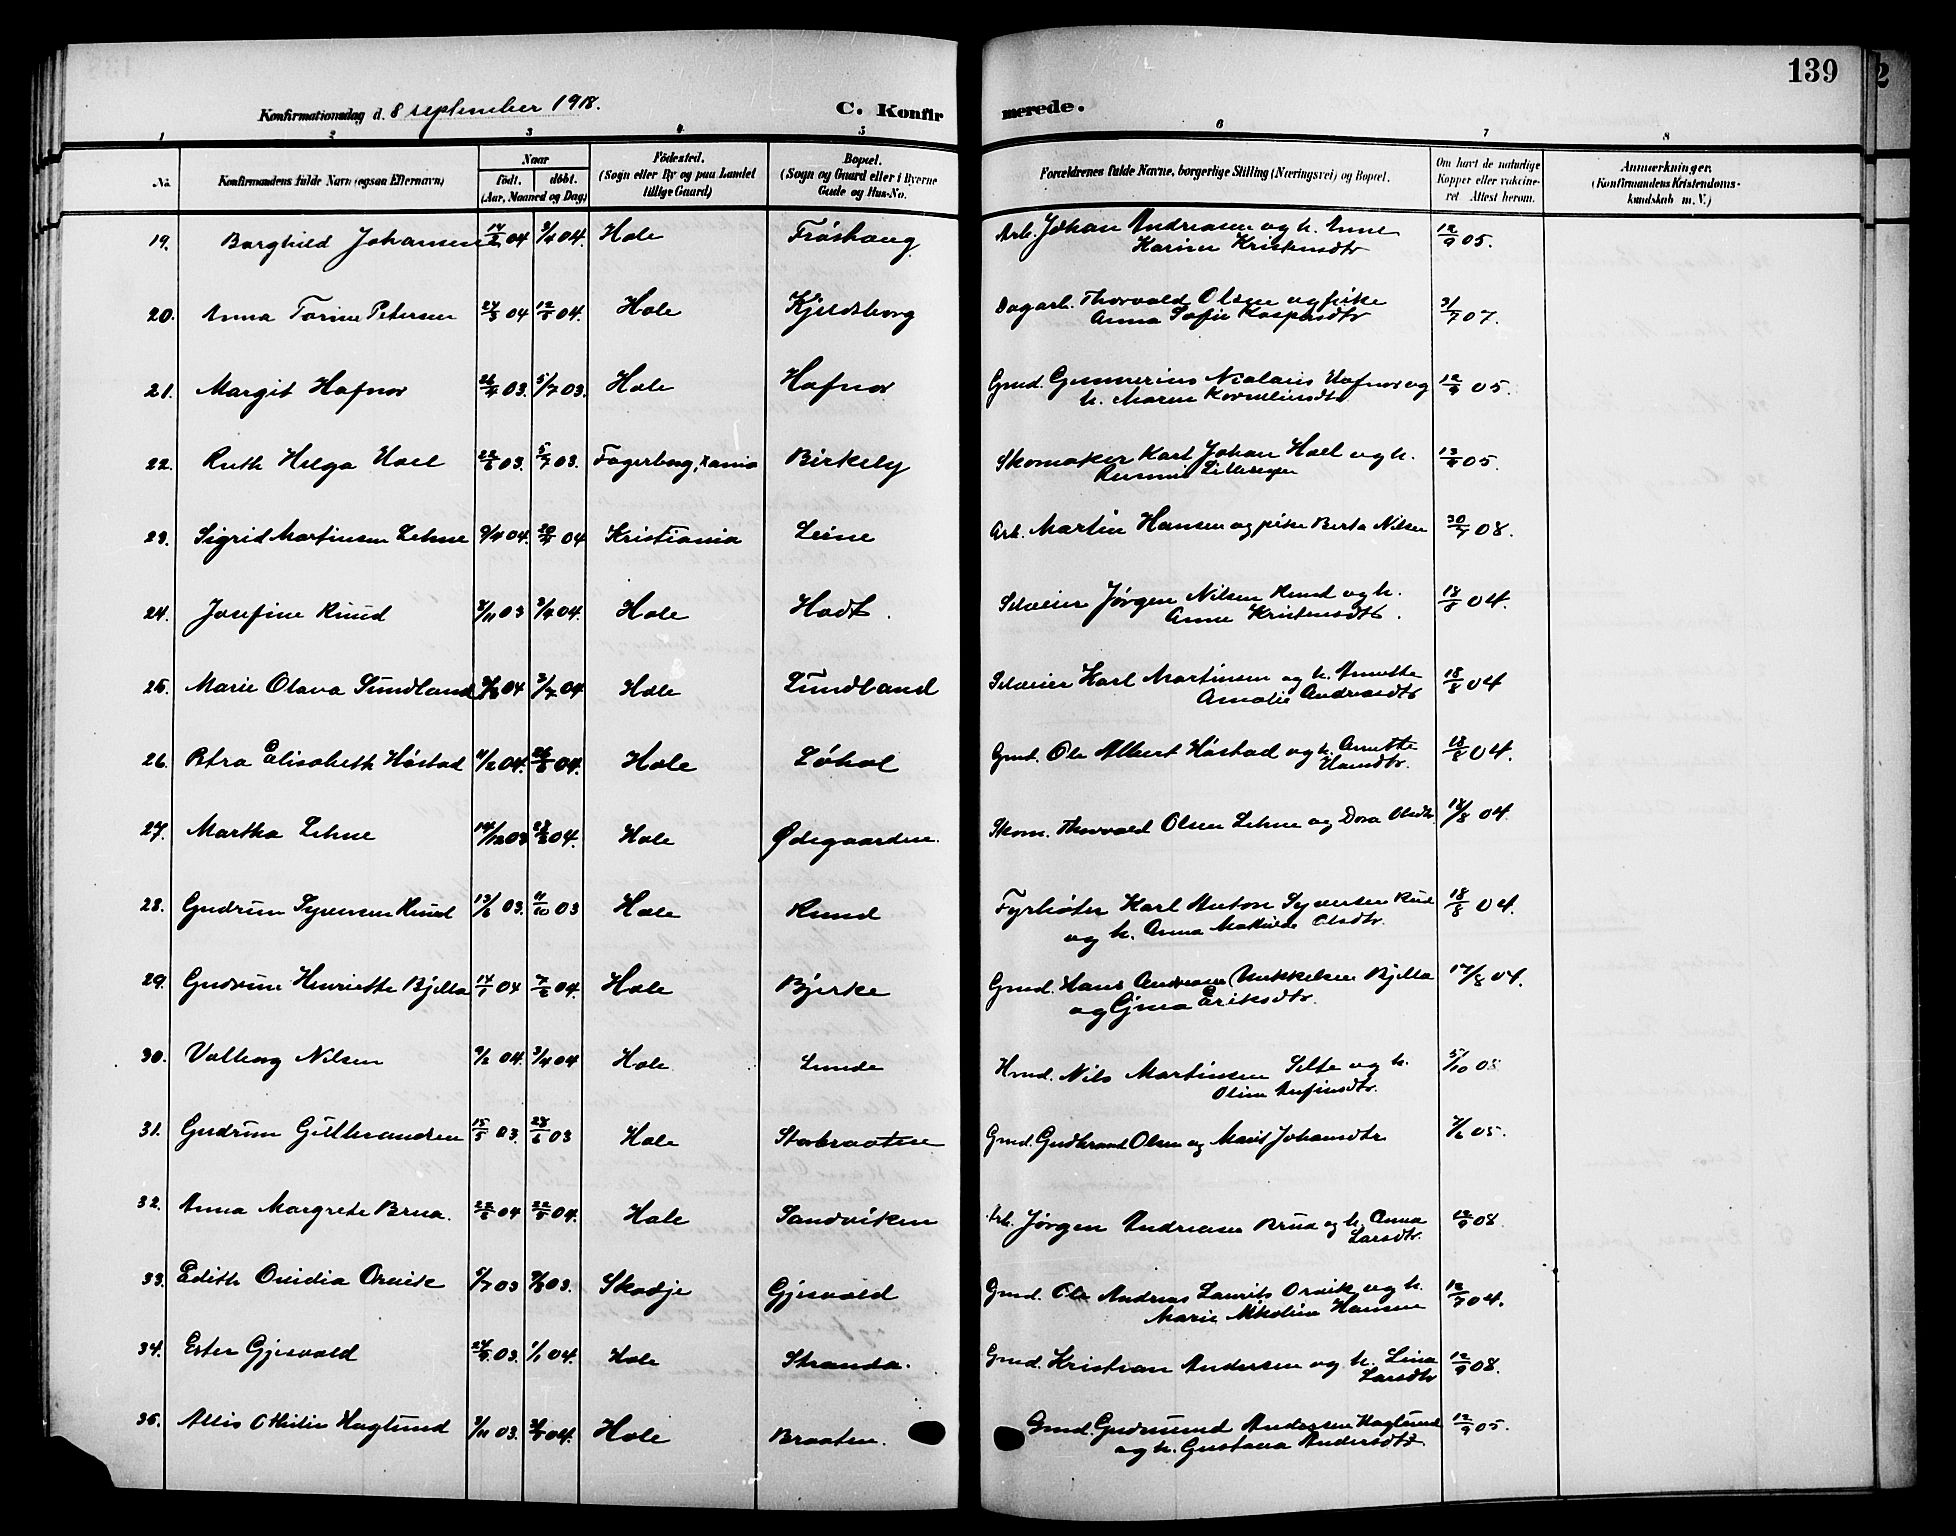 139
Konfirmationsdag d. 8 september 1918.
C. Konfirmerede.
1 2 3 4 5 6 7 8
No.
Konfirmandens fulde Navn (ogsaa Efternavn)
Naar
født. døbt.
(Aar, Maaned og Dag)
Fødested.
(Sogn eller By og paa Landet
tillige Gaard)
Bopæl.
(Sogn og Gaard eller i Byerne
Gade og Hus-No.
Forældrenes fulde Navne, borgerlige Stilling (Næringsvei) og Bopæl.
Om havt de naturlige
Kopper eller vakcine-
ret Attest herom.
Anmærkninger.
(Konfirmandens Kristendoms-
kundskab m. V.)
19. Borghild Johansen 14/2 04 3/4 04. Hole Frøshaug Arb. Johan Andreasen og h. Anne 12/9 05.
Karine Kristensdtr
20. Anna Torine Petersen 24/3 04 12/5 04. Hole Kjeldsberg Dagarb. Thorvald Olsen og pike 3/7 07.
Anna Sofie Kaspersdtr
21. Margit Hafnor 26/4 03. 5/7 03. Hole Hafnor Gmd. Gunnerius Nicolais Hafnor og 12/9 05.
h. Maren Korneliusdtr
22. Ruth Helga Hoel 22/6 03. 5/7 03. Fagerborg, Xania Birkely Skomaker Karl Johan Hoel og h. 12/9 05.
23. Sigrid Martinsen Lehne 9/4 04. 04 Kristiania Leine Arb. Martin Hansen og pike Berta Nilsen 30/7 08.
24. Josefine Ruud 3/11 03 3/4 04. Hole Hodt. Selveier Jørgen Nilsen Ruud og h. 18/8 04.
Anne Kristensdtr.
25. Marie Olava Sundland 04 3/7 04 Hole Sundland Selveier Karl Martinsen og h. Annette 18/8 04
Amalie Andreasdtr
26. Petra Elisabeth Høstad 04. 04. Hole Løhol Gmd. Ole Albert Høstad og h. Annette 18/8 04.
Hansdtr.
27. Martha Lehne 14/12 03 04. Hole Ødegaarden. Skom. Thorvald Olsen Lehne og Dora Olsdtr. 18/8 04.
28. Gudrun Syversen Ruud 13/6 03. 11/10 03 Hole Ruud Fyrbøter Karl Anton Syversen Rud 18/8 04.
og h. Anna Mathilde Olsdtr.
29. Gudrun Henriette Bjella 14/1 04 04. Hole Bjerke Gmd. Hans Andreas Mikkelsen Bjella 17/8 04.
og Gina Eriksdtr.
30. Valborg Nilsen 9/2 04. 3/4 04 Hole Lunde Hmd. Nils Martinsen Selte og h. 5/10 08
Oline Anfinsdtr.
31. Gudrun Gulbrandsen 15/5 03. 28/6 03 Hole Storbraaten Gmd. Gudbrand Olsen og Marit Johansdtr 05.
32. Anna Margrete Brua. 04 04. Hole Sandviken Arb. Jørgen Andreasen Brua og h. Anna 12/9 08.
Larsdtr.
33. Edith Ovidia Orvik 03 03. Skodje Gjesvold Gmd. Ole Andreas Laurits Orvik og h. 04.
Marie Nikoline Hansen
34. Ester Gjesvold 03. 1/1 04. Hole Stranda. Gmd. Kristian Andersen og h. Lina 12/9 08.
Larsdtr
35. Allis Othilie Haglund 3/11 03. 04. Hole Braaten. Gmd. Gudmund Andersen Haglund 12/9 05.
og h. Gustava Andersdtr.